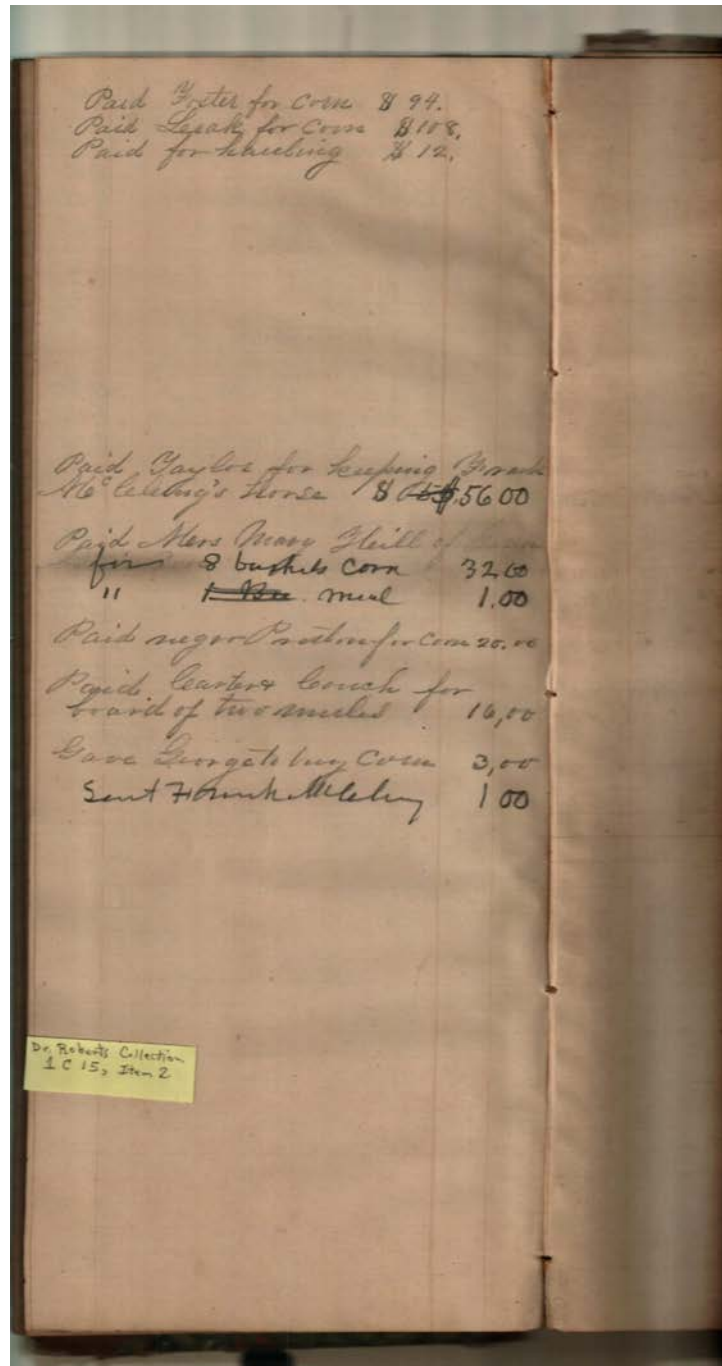 Paid Foster for Corn $ 94.
Paid Leak for Corn $ 108.
Paid for hauling $ 12.
Paid Taylor for keeping Frank
Mc 's horse $ 56 00
Paid Mrs Mary
for 8 bushels corn 32.00
" 1 Bu. meal 1.00
Paid negro Preston for Corn 20.00
Paid Carter & Couch for
board of two mules 16,00
Gave George to buy Corn 3,00
Sent Frank 1 00
Dr. Roberts Collection
1 C 15, Item 2